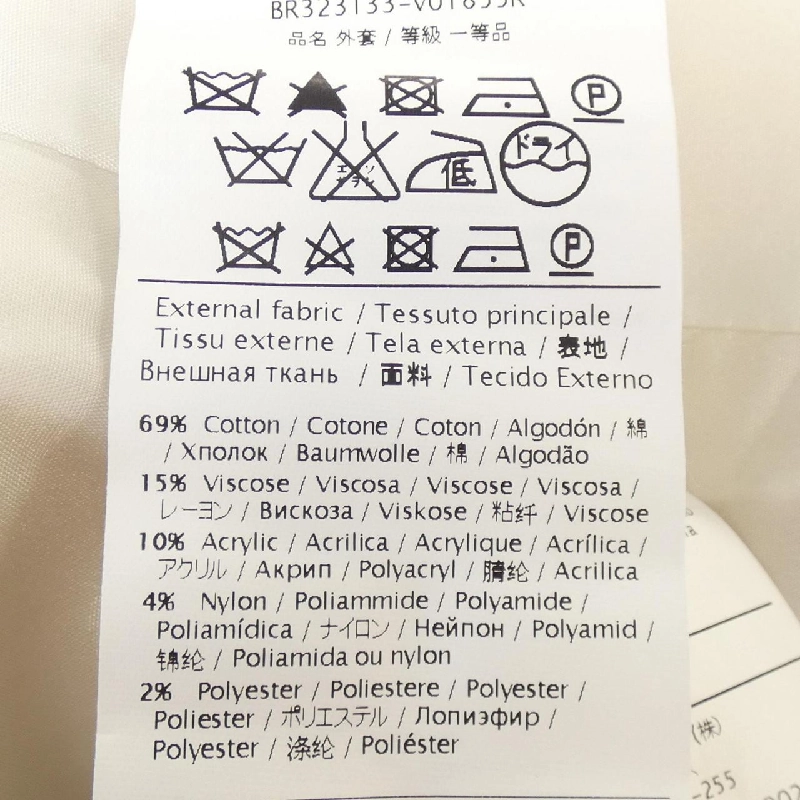 BR323133-V01855R
品名 外套 / 等級 一等品
P
エンソ サラシ 低 ドライ
P
External fabric / Tessuto principale /
Tissu externe / Tela externa / 表地 /
Внешная ткань / 面料 / Tecido Externo
69% Cotton / Cotone / Coton / Algodón / 綿
/ Хполок / Baumwolle / 棉 / Algodão
15% Viscose / Viscosa / Viscose / Viscosa /
レーヨン / Вискоза / Viskose / 粘纤 / Viscose
10% Acrylic / Acrilica / Acrylique / Acrílica /
アクリル / Акрип / Polyacryl / 腈纶 / Acrilica
4% Nylon / Poliammide / Polyamide /
Poliamídica / ナイロン / Нейпон / Polyamid /
锦纶 / Poliamida ou nylon
2% Polyester / Poliestere / Polyester /
Poliester / ポリエステル / Лопиэфир /
Polyester / 涤纶 / Poliéster
(株)
-255